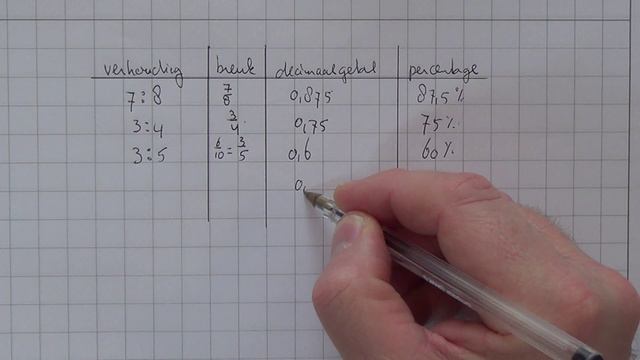 verhouding breuk decimaalgetal percentage
7:8 7/8 0,875 87,5%
3:4 3/4 0,75 75%
3:5 6/10 = 3/5 0,6 60%
0,